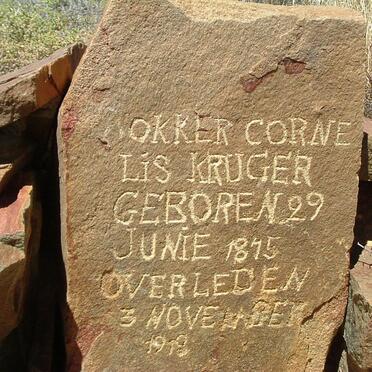 OKKER CORNE
LIS KRUGER
GEBOREN 29
JUNIE 1875
OVERLEDEN
3 NOVEMBER
1918